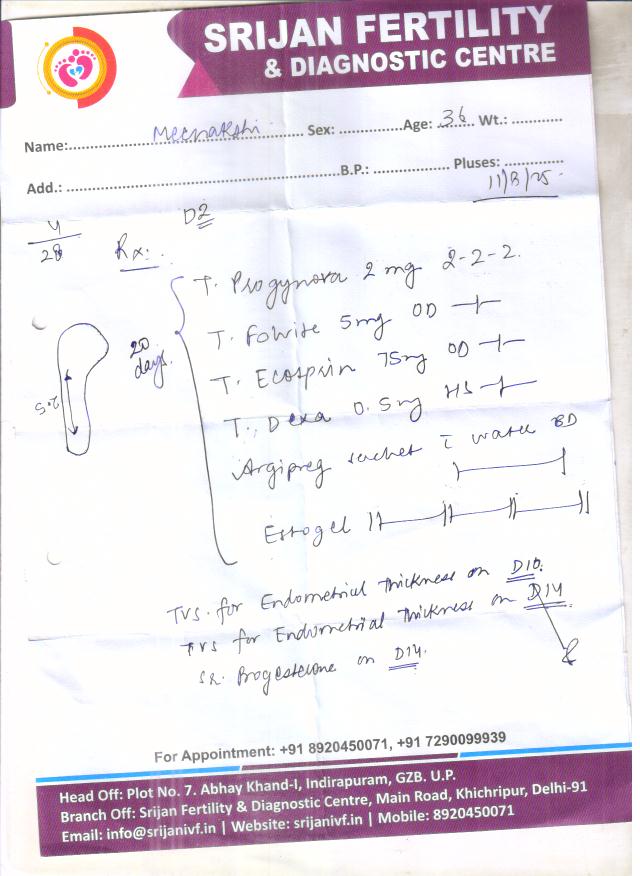 SRIJAN FERTILITY
& DIAGNOSTIC CENTRE
Name: Meenakshi Sex: Age: 36 Wt.:
Add.: B.P.: Pluses:
11/8/25
D2
4
28
Rx:
T. Progynova 2mg 2-2-2.
T. Folvite 5mg OD
20 days.
T. Ecosprin 75mg OD
2.5
T. Dexa 0.5mg HS
Argipreg sachet c water BD
Estogel
TVS. for Endometrial Thickness on D10.
TVS for Endometrial Thickness on D14
SR. Progesterone on D14.
For Appointment: +91 8920450071, +91 7290099939
Head Off: Plot No. 7. Abhay Khand-I, Indirapuram, GZB. U.P.
Branch Off: Srijan Fertility & Diagnostic Centre, Main Road, Khichripur, Delhi-91
Email: info@srijanivf.in | Website: srijanivf.in | Mobile: 8920450071